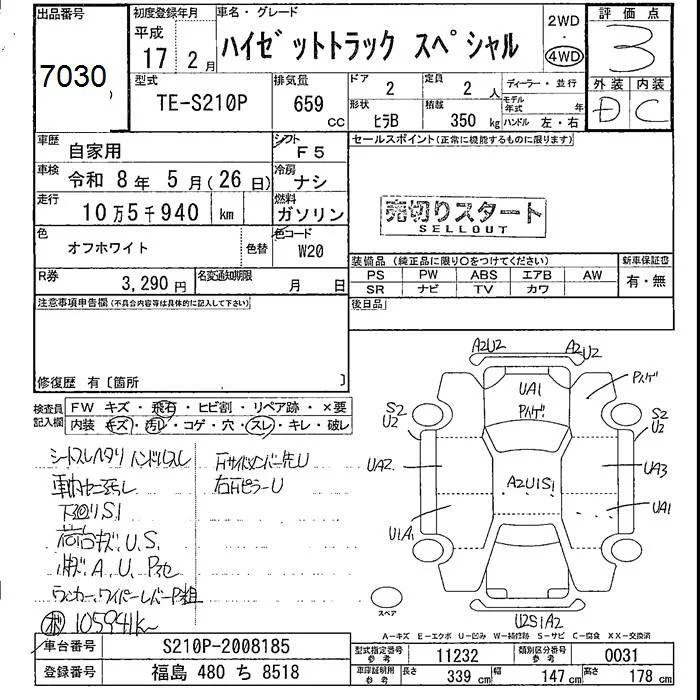 出品番号 7030
初度登録年月 平成 17 2月
車名・グレード ハイゼットトラック スペシャル
2WD ・ 4WD
評価点 3
外装 D 内装 C
型式 TE-S210P
排気量 659 cc
ドア 2
定員 2 人
ディーラー・並行
形状 ヒラB
積載 350 kg
モデル年式 年
ハンドル 左・右
車歴 自家用
シフト F5
セールスポイント(正常に機能するものに限ります)
車検 令和 8年 5月(26日)
冷房 ナシ
走行 10万5千940 km
燃料 ガソリン
売切りスタート
SELLOUT
色 オフホワイト
色替
色コード W20
装備品(純正品に限り○をつけてください)
新車保証書 有・無
PS PW ABS エアB AW
SR ナビ TV カワ
R券 3,290円
名変通知期限 月 日
後日品
注意事項申告欄(不具合内容等は具体的に記入して下さい)
修復歴 有〔箇所 〕
検査員記入欄
FW キズ・飛石・ヒビ割・リペア跡・×要
内装 キズ・汚れ・コゲ・穴・スレ・キレ・破レ
シートスレヘタリ ハンドルスレ
下廻りS1
荷台キズ.U.S.
105941k
A2U2 A2U2
UA1
Pハゲ
Pハゲ
S2
U2
S2
U2
UA2
A2U1S1
UA3
U1A1
UA1
U2S1A2
スペア
A−キズ E−エクボ U−凹み W−補修跡 S−サビ C−腐食 XX−交換済
車台番号 S210P-2008185
登録番号 福島 480 ち 8518
型式指定番号 参考 11232
類別区分番号 参考 0031
車庫証明用 参考 長さ 339 cm 幅 147 cm 高さ 178 cm